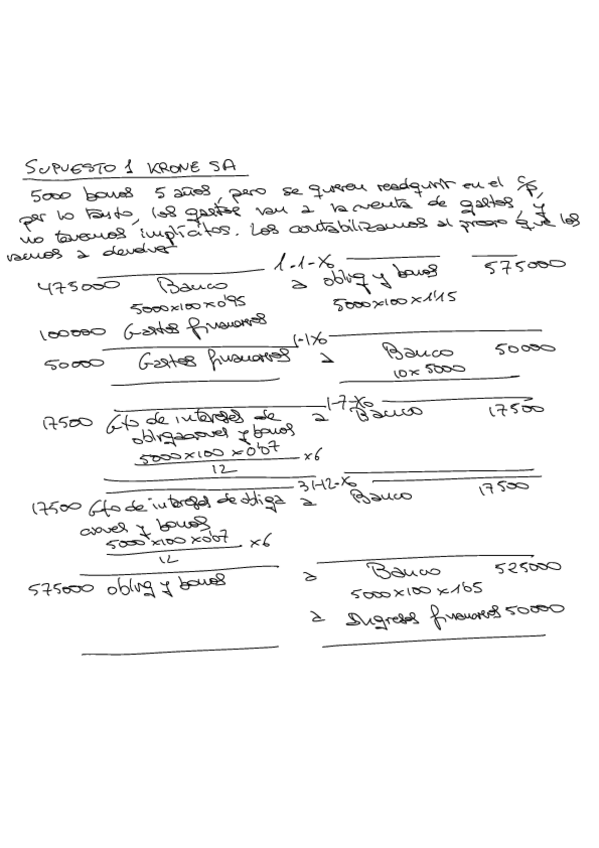 SUPUESTO 1 KRONE SA
5000 bonos 5 años, pero se quieren readquirir en el c/p,
por lo tanto, los gastos van a la cuenta de gastos, y
no tenemos implícitos. Los contabilizamos al precio que los
vamos a devolver
1-1-X0
475000 Banco a oblig y bonos 575000
5000x100x0'95 5000x100x1'15
100000 Gastos financieros
1-1-X0
50000 Gastos financieros a Banco 50000
10x5000
1-7-X0
17500 Gto de intereses de a Banco 17500
obligaciones y bonos
5000x100x0'07 x6
12
31-12-X0
17500 Gto de intereses de obliga a Banco 17500
ciones y bonos
5000x100x0'07 x6
12
575000 oblig y bonos a Banco 525000
5000x100x1'05
a Ingresos financieros 50000